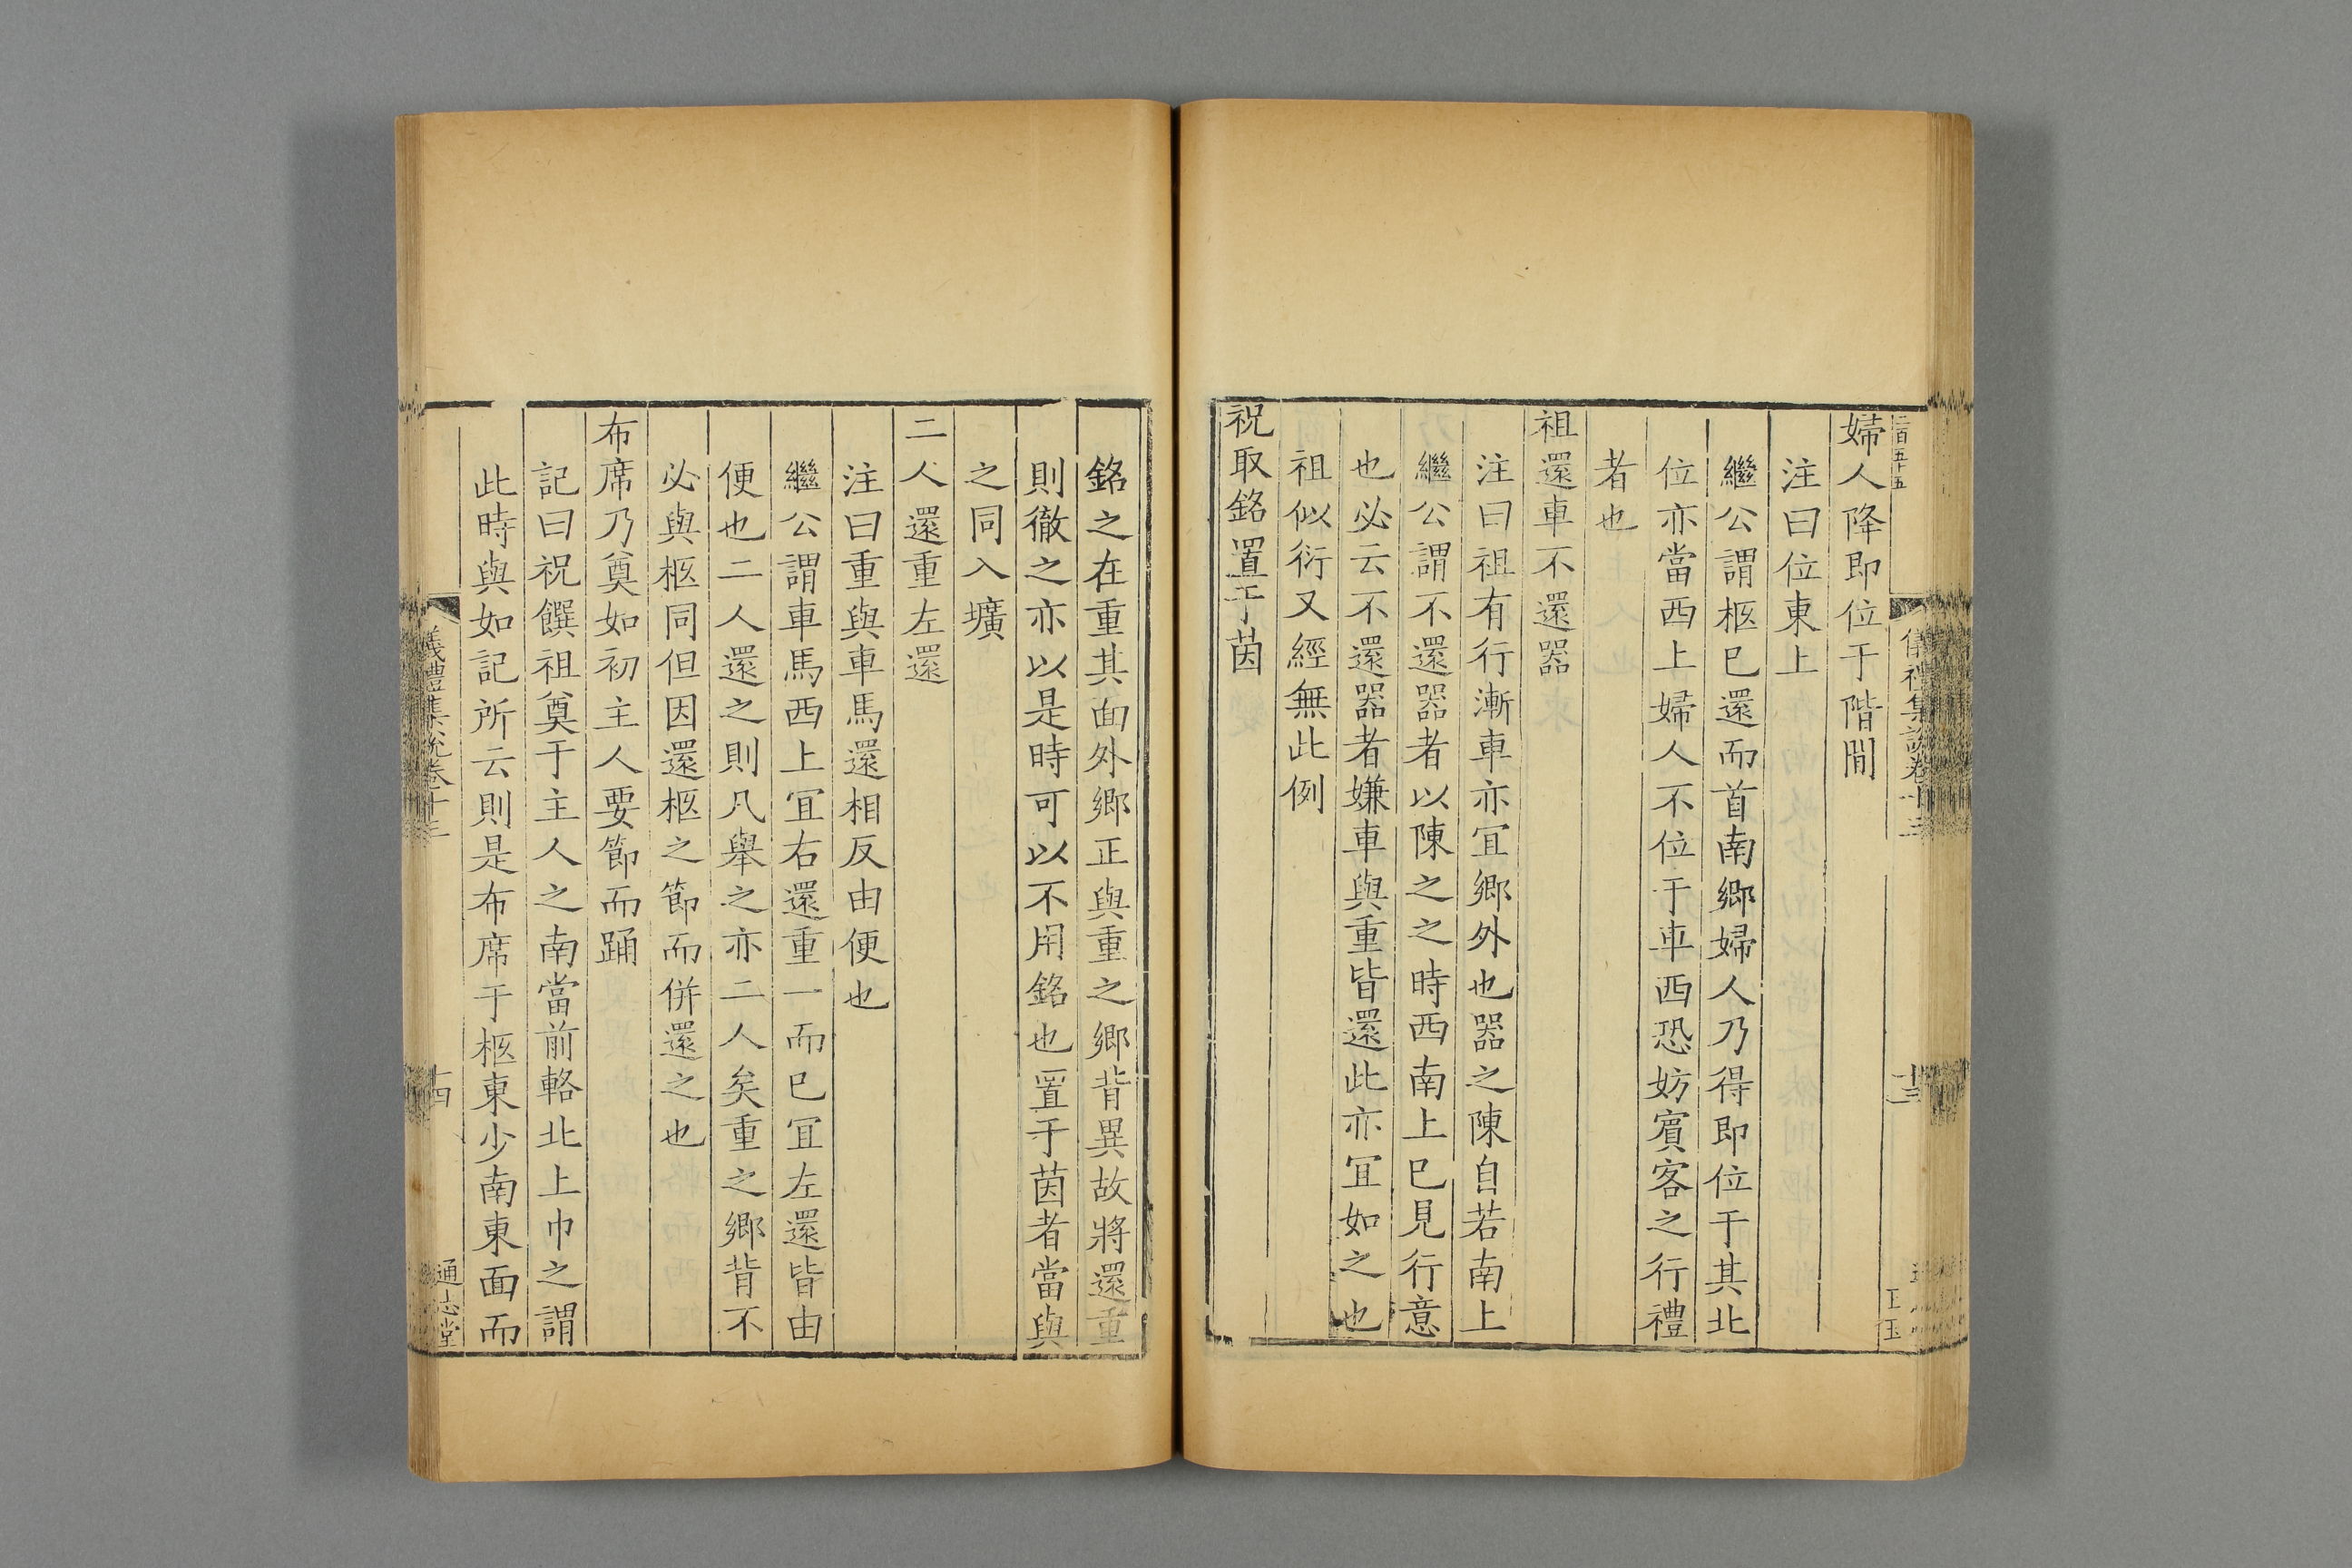 二百五十五
儀禮集說卷十三
十三
婦人降即位于階間
注曰位東上
繼公謂柩巳還而首南鄉婦人乃得即位于其北
位亦當西上婦人不位于車西恐妨賓客之行禮
者也
祖還車不還器
注曰祖有行漸車亦冝鄉外也器之陳自若南上
繼公謂不還器者以陳之之時西南上巳見行意
也必云不還器者嫌車與重皆還此亦冝如之也
祖似衍又經無此例
祝取銘置于茵
銘之在重其面外鄉正與重之鄉背異故將還重
則徹之亦以是時可以不用銘也置于茵者當與
之同入壙
二人還重左還
注曰重與車馬還相反由便也
繼公謂車馬西上冝右還重一而巳冝左還皆由
便也二人還之則凡舉之亦二人矣重之鄉背不
必與柩同但因還柩之節而併還之也
布席乃奠如初主人要節而踊
記曰祝饌祖奠于主人之南當前輅北上巾之謂
此時與如記所云則是布席于柩東少南東面而
儀禮集說卷十三
十四
通志堂